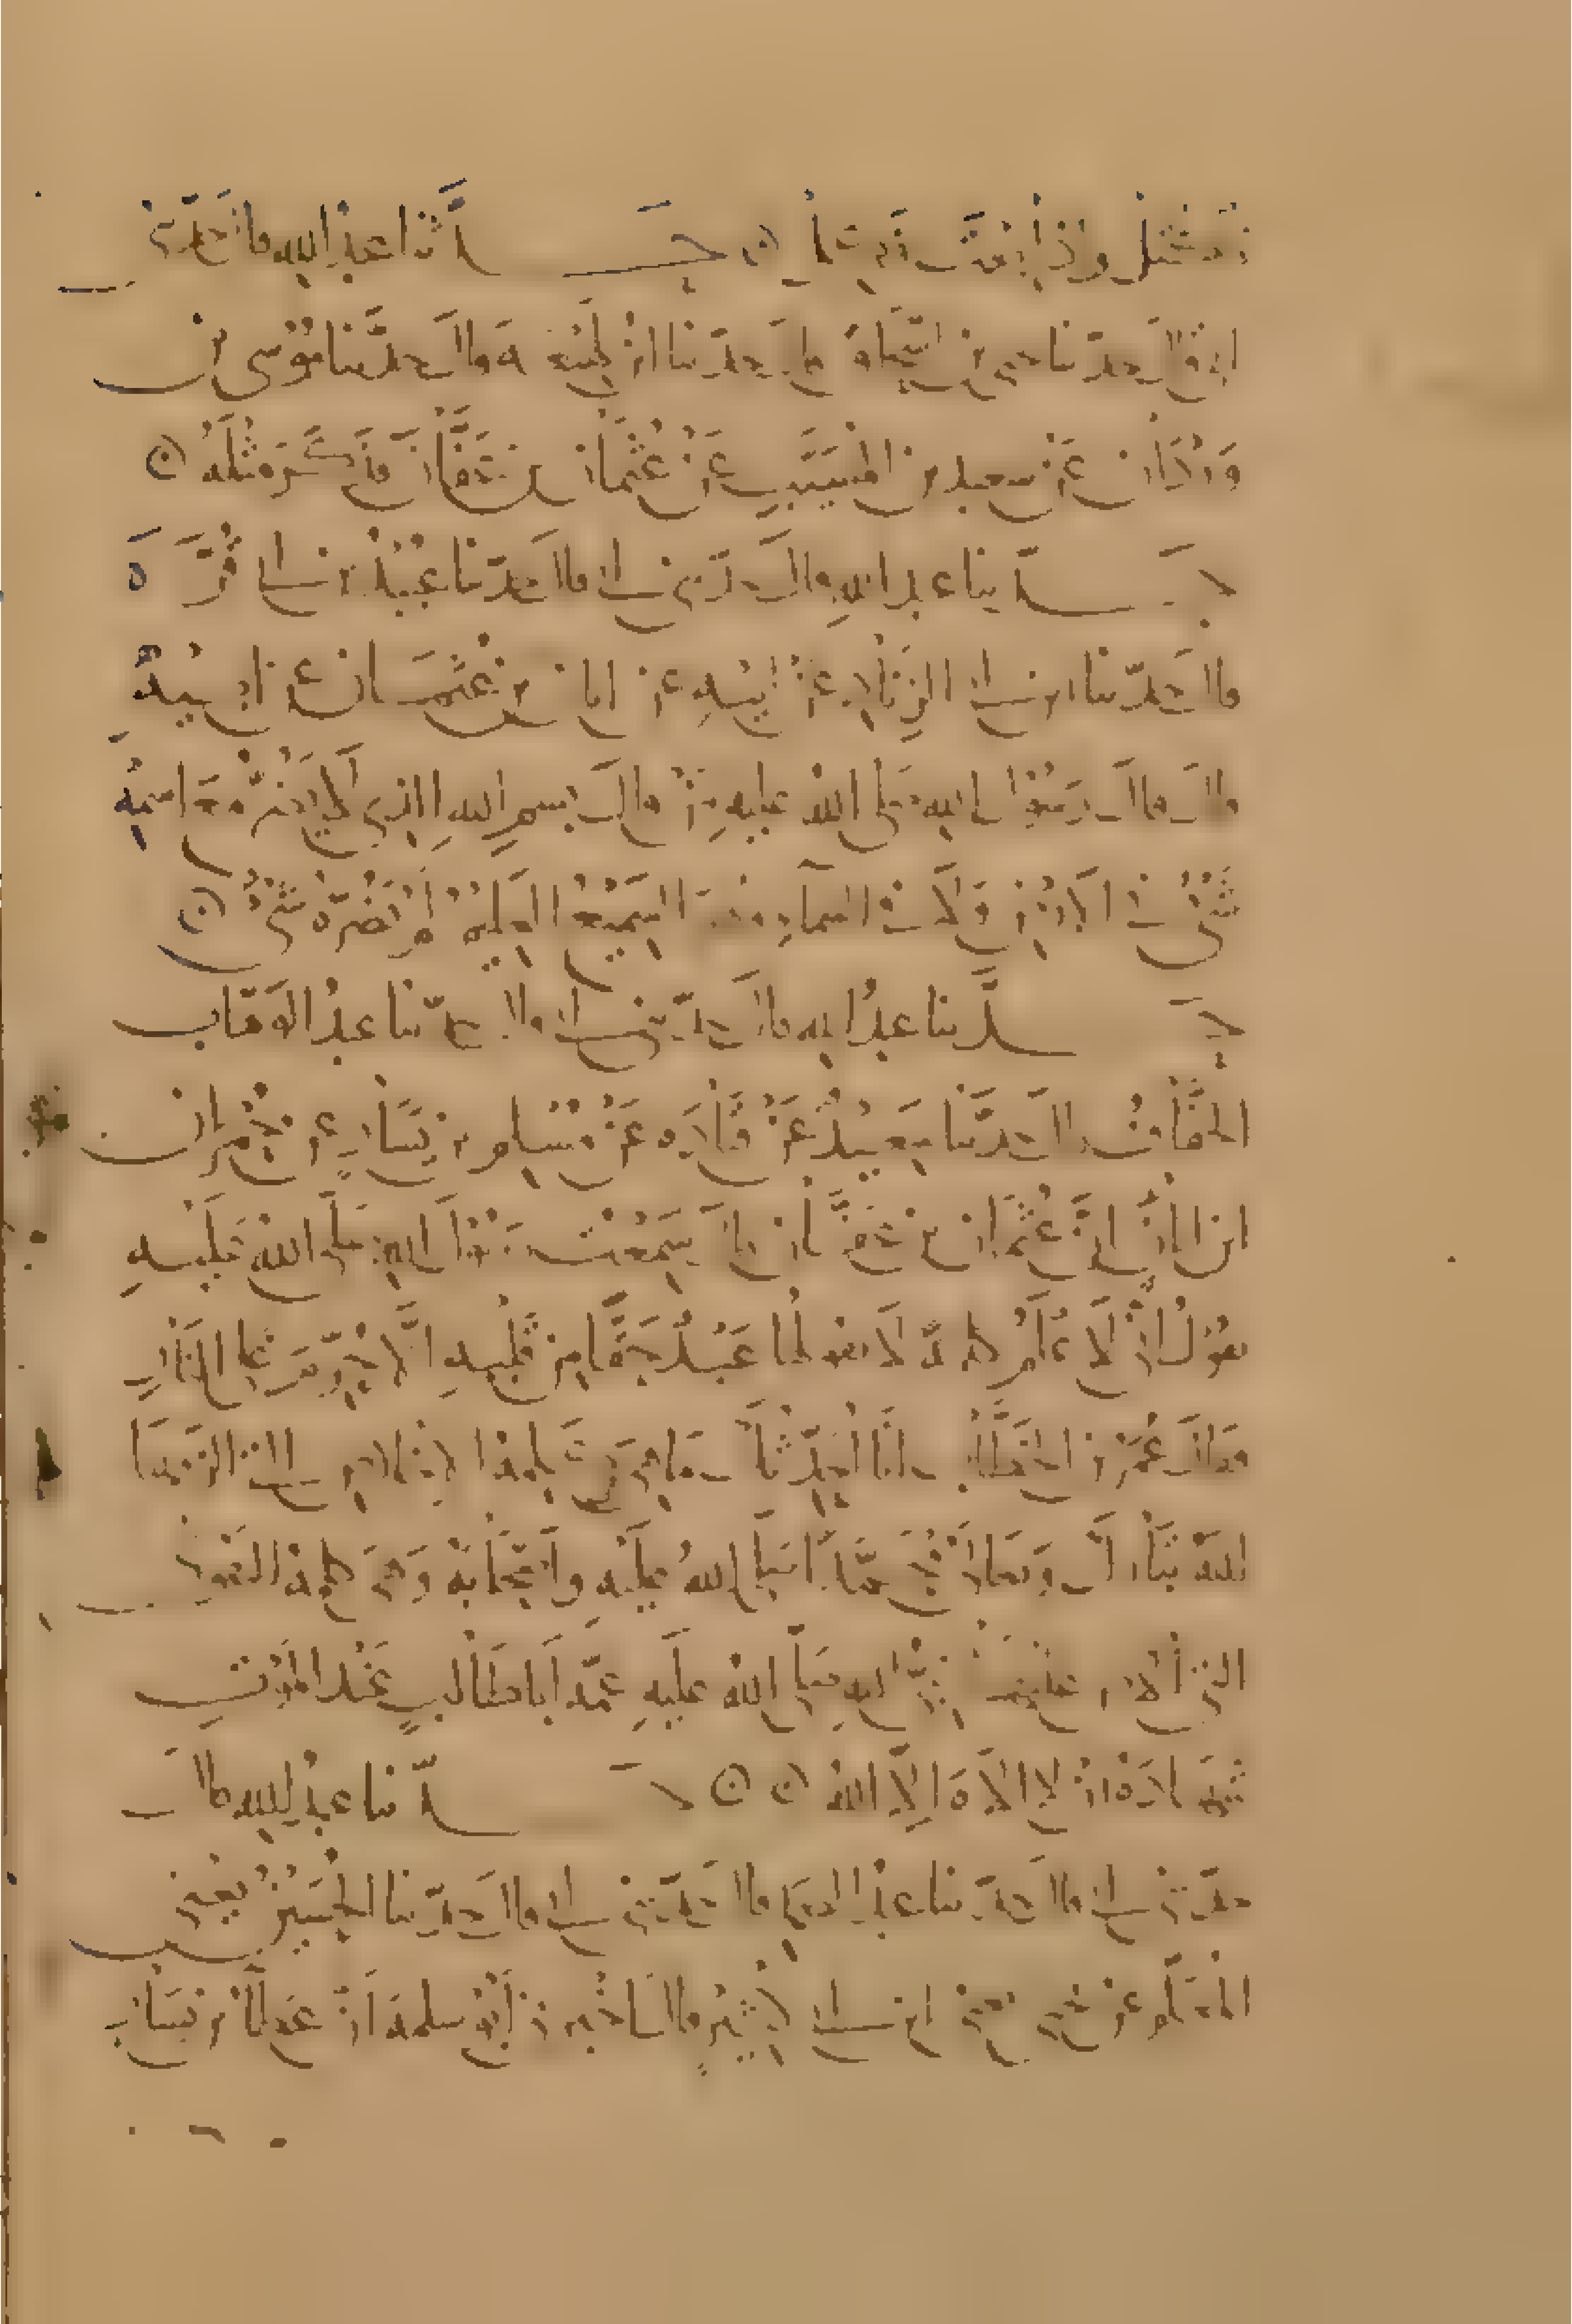 فاكتل وإذا بعت فكل ۞ حدثنا عبد الله قال حدثني
ابي قال حدثنا يحيى بن اسحاق قال حدثنا ابن لهيعة قال حدثنا موسى بن
وردان عن سعيد بن المسيب عن عثمان بن عفان فذكر مثله ۞
حدثنا عبد الله قال حدثني ابي قال حدثنا عبيد بن ابي قرة
قال حدثنا ابن ابي الزناد عن ابيه عن ابان بن عثمان عن ابيه
قال قال رسول الله صلى الله عليه من قال بسم الله الذي لا يضر مع اسمه
شيء في الارض ولا في السماء وهو السميع العليم لم يضره شيء ۞
حدثنا عبد الله قال حدثني ابي قال حدثنا عبد الوهاب
الخفاف قال حدثنا سعيد عن قتادة عن مسلم بن يسار عن حمران
ابن ابان ان عثمان بن عفان قال سمعت رسول الله صلى الله عليه
يقول اني لاعلم كلمة لا يقولها عبد حقا من قلبه الا حرم على النار
فقال عمر بن الخطاب انا احدثك ما هي هي كلمة الاخلاص التي الزمها
الله تبارك وتعالى محمدا صلى الله عليه واصحابه وهي كلمة التقوى
التي الاص عليها نبي الله صلى الله عليه عمه ابا طالب عند الموت
شهادة ان لا اله الا الله ۞ ۞ حدثنا عبد الله قال
حدثني ابي قال حدثنا عبد الصمد قال حدثني ابي قال حدثنا الحسين يعني
المعلم عن يحيى يعني ابن ابي كثير قال اخبرني ابو سلمة ان عطا بن يسار